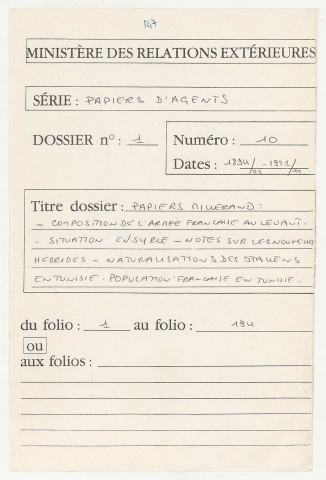 147
MINISTÈRE DES RELATIONS EXTÉRIEURES
SÉRIE : PAPIERS D'AGENTS
DOSSIER n° : 1
Numéro : 10
Dates : 1894/ - 1921/
Titre dossier : PAPIERS MILLERAND :
- COMPOSITION DE L'ARMEE FRANCAISE AU LEVANT.
- SITUATION EN SYRIE - NOTES SUR LES NOUVELLES
HEBRIDES - NATURALISATIONS DES ITALIENS
EN TUNISIE. POPULATION FRANCAISE EN TUNISIE.
du folio : 1 au folio : 184
ou
aux folios :